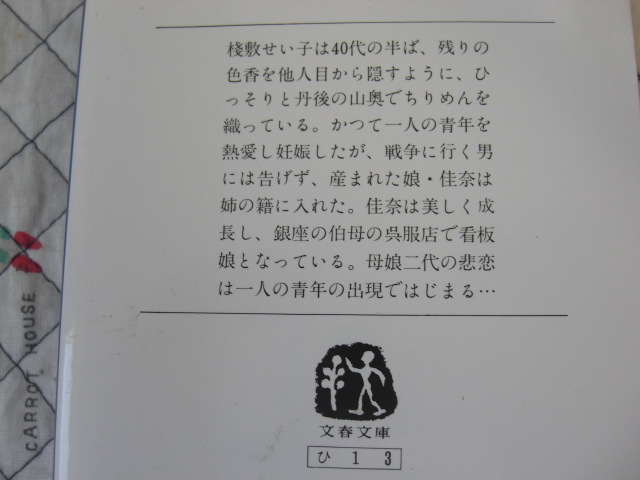 棧敷せい子は40代の半ば、残りの
色香を他人目から隠すように、ひ
っそりと丹後の山奥でちりめんを
織っている。かつて一人の青年を
熱愛し妊娠したが、戦争に行く男
には告げず、産まれた娘・佳奈は
姉の籍に入れた。佳奈は美しく成
長し、銀座の伯母の呉服店で看板
娘となっている。母娘二代の悲恋
は一人の青年の出現ではじまる…
文春文庫
ひ 1 3
CARROT HOUSE